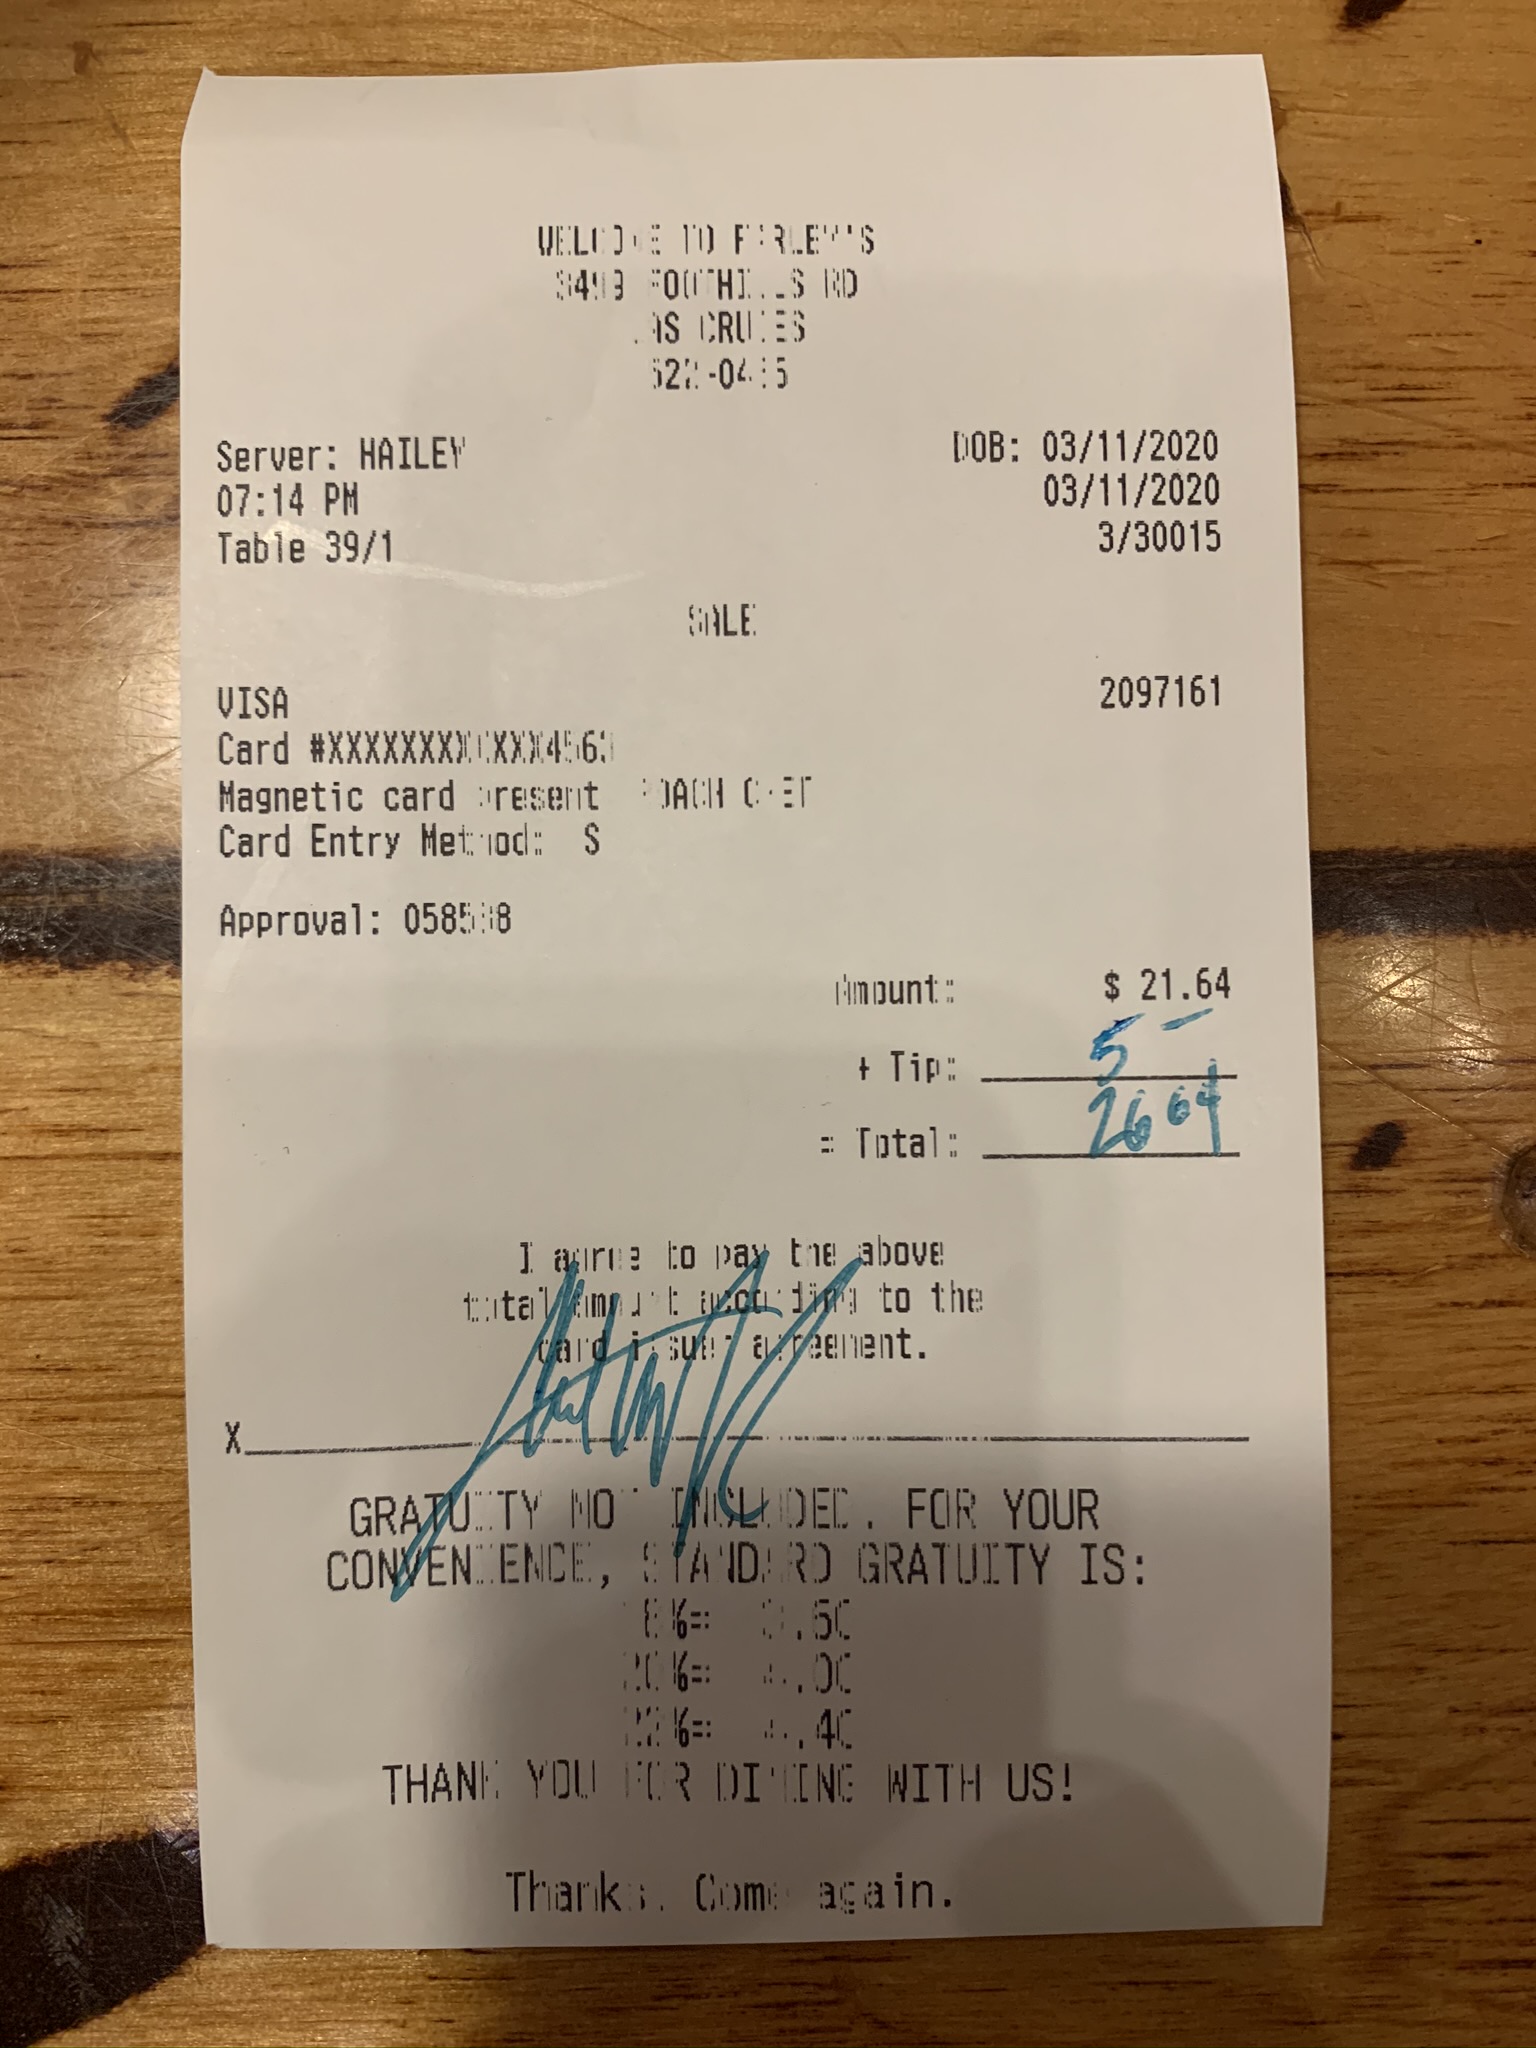 WELCOME TO FARLEY'S
3499 FOOTHILLS RD
LAS CRUCES
522-0435
Server: HAILEY DOB: 03/11/2020
07:14 PM 03/11/2020
Table 39/1 3/30015
SALE
VISA 2097161
Card #XXXXXXXXXXXX4563
Magnetic card present
Card Entry Method: S
Approval:
Amount: $ 21.64
+ Tip: 5 —
= Total: 26 64
I agree to pay the above
total amount according to the
card issuer agreement.
X
GRATUITY NOT INCLUDED. FOR YOUR
CONVENIENCE, STANDARD GRATUITY IS:
18%= 3.60
20%= 4.00
22%= 4.40
THANK YOU FOR DINING WITH US!
Thanks. Come again.